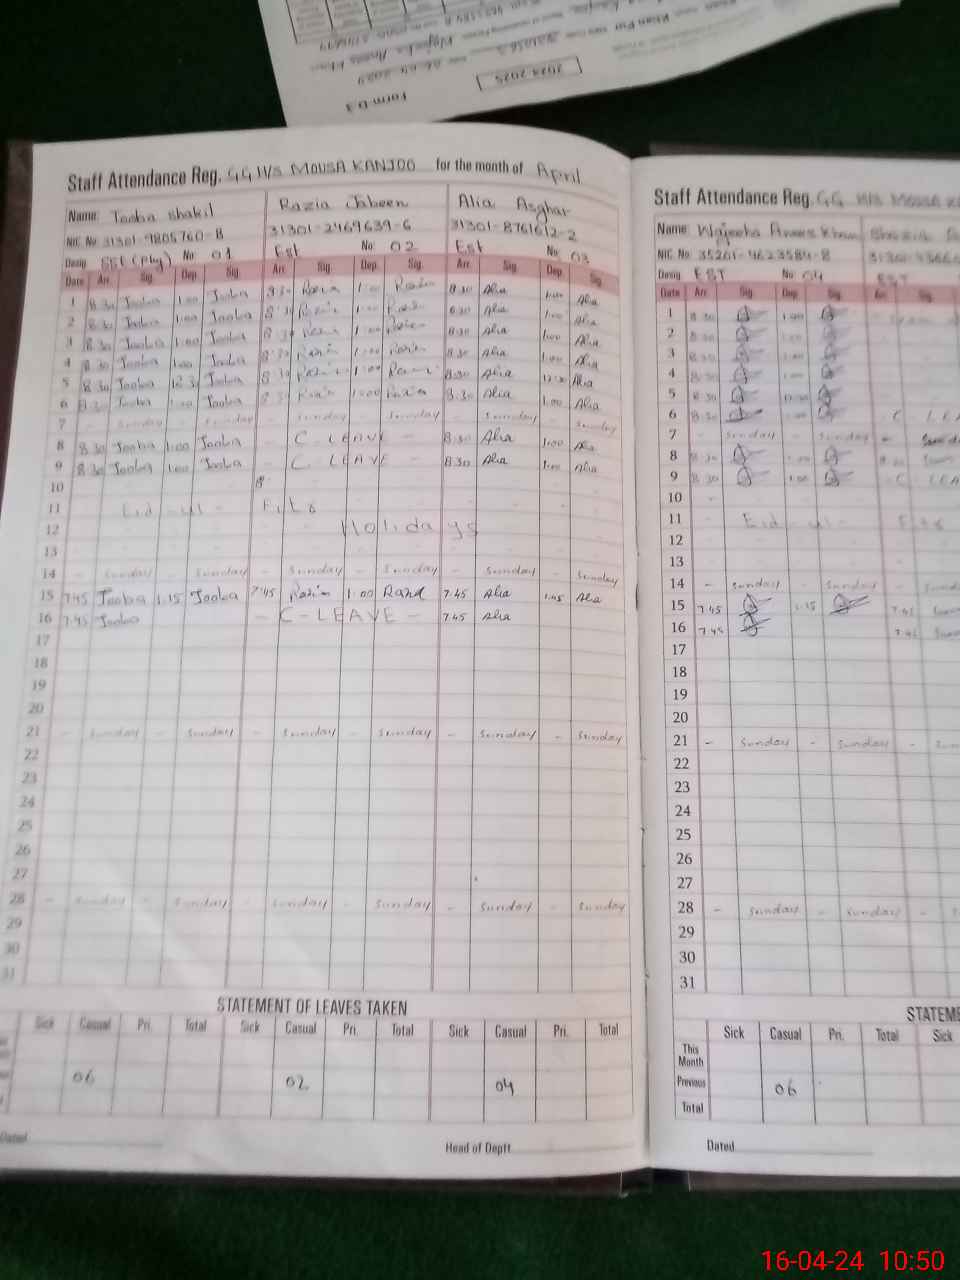 Form D-3
2024 2025
Staff Attendance Reg. GG H/S MOUSA KANJOO for the month of April
Name: Tooba Shakil Razia Jabeen Alia Asghar
NIC No 31301-9805760-8 31301-2469639-6 31301-8761612-2
Desig SST (Phy) No 01 Est No 02 Est No 03
Date Arr. Sig. Dep. Sig. Arr. Sig. Dep. Sig. Arr. Sig. Dep. Sig.
1 8:30 Tooba 1:00 Tooba 8:30 Razia 1:00 Razia 8:30 Alia 1:00 Alia
2 8:30 Tooba 1:00 Tooba 8:30 Razia 1:00 Razia 8:30 Alia 1:00 Alia
3 8:30 Tooba 1:00 Tooba 8:30 Razia 1:00 Razia 8:30 Alia 1:00 Alia
4 8:30 Tooba 1:00 Tooba 8:30 Razia 1:00 Razia 8:30 Alia 1:00 Alia
5 8:30 Tooba Tooba 8:30 Razia 1:00 Razia 8:30 Alia Alia
6 8:30 Tooba 1:00 Tooba 8:30 Razia 1:00 Razia 8:30 Alia 1:00 Alia
7 - Sunday - Sunday - Sunday - Sunday - Sunday - Sunday
8 8:30 Tooba 1:00 Tooba - C - LEAVE - 8:30 Alia 1:00 Alia
9 8:30 Tooba 1:00 Tooba - C LEAVE - 8:30 Alia 1:00 Alia
10
11 Eid - ul - Fits
12 Holidays
13
14 - Sunday - Sunday - Sunday - Sunday - Sunday - Sunday
15 7:45 Tooba 1:15 Tooba 7:45 Razia 1:00 Razia 7:45 Alia 1:45 Alia
16 7:45 Tooba - C - LEAVE - 7:45 Alia
17
18
19
20
21 - Sunday - Sunday - Sunday - Sunday - Sunday - Sunday
22
23
24
25
26
27
28 - Sunday - Sunday - Sunday - Sunday - Sunday - Sunday
29
30
31
STATEMENT OF LEAVES TAKEN
Sick Casual Pri. Total Sick Casual Pri. Total Sick Casual Pri. Total
06 02 04
Dated Head of Deptt
Staff Attendance Reg. GG H/S MOUSA
Name: Wajeeha Anees Khan Shazia
NIC No 35201-4623584-8
Desig EST No 04 EST
Date Arr. Sig. Dep. Sig. Arr. Sig.
1 8:30 1:00
2 8:30 1:00
3 8:30 1:00
4 8:30 1:00
5 8:30
6 8:30 - C - LEA
7 - Sunday - Sunday -
8 8:30 1:00
9 8:30 1:00 - C - LEA
10
11 Eid - ul - Fits
12
13
14 - Sunday - Sunday -
15 7:45 1:15 7:45
16 7:45 7:45
17
18
19
20
21 - Sunday - Sunday -
22
23
24
25
26
27
28 - Sunday - Sunday -
29
30
31
STATEME
Sick Casual Pri. Total Sick
This Month
Previous 06
Total
Dated
16-04-24 10:50